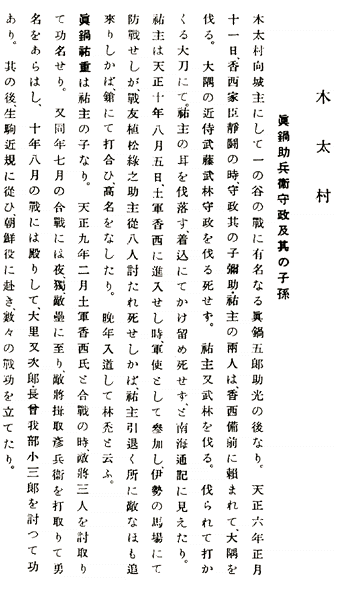 木太村
眞鍋助兵衞守政及其の子孫
木太村向城主にして一の谷の戰に有名なる眞鍋五郎助光の後なり。天正六年正月
十一日、香西家臣靜鬪の時、守政其の子彌助・祐主の兩人は、香西備前に賴まれて、大隅を
伐る。大隅の近侍武藤武林守政を伐る死せず。祐主又武林を伐る。伐られて打か
くる大刀にて。祐主の耳を伐落す、着込にてかけ留め死せず、と南海通記に見えたり。
祐主は天正十年八月五日、土軍香西に進入せし時、軍使として參加し、伊勢の馬場にて
防戰せしが、戰友植松綠之助主從八人討たれ死せしかば、祐主引退く所に敵なほも追
來りしかば、鎗にて打合ひ、高名をなしたり。晩年入道して林禿と云ふ。
眞鍋祐重は祐主の子なり。天正九年二月土軍香西氏と合戰の時、敵將三人を討取り
て功名せり。又同年七月の合戰には夜、獨敵壘に至り、敵將揖取彥兵衞を打取りて勇
名をあらはし、十年八月の戰には殿りして、大里又次郎・長曾我部小三郎を討つて功
あり。其の後、生駒近規に從ひ、朝鮮役に赴き、數々の戰功を立てたり。